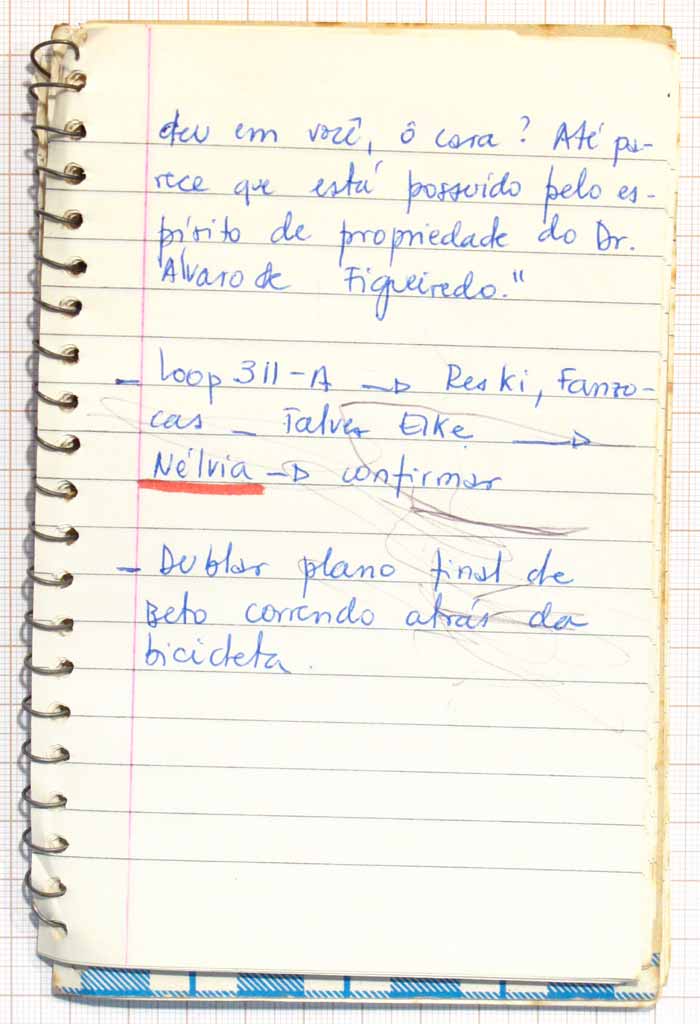 deu em você, ô cara? Até pa-
rece que está possuído pelo es-
pírito de propriedade do Dr.
Álvaro de Figueiredo."
- Loop 311-A → Reski, Fanzo-
cas - Talvez Elke →
Nélvia → confirmar
- Dublar plano final de
Beto correndo atrás da
bicicleta.